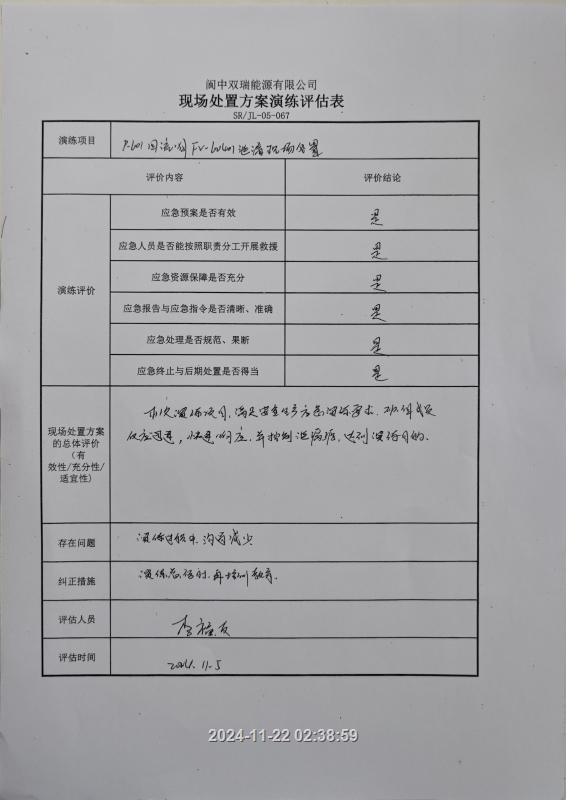 阆中双瑞能源有限公司
现场处置方案演练评估表
SR/JL-05-067
演练项目
P-601回流阀FV-60601泄漏现场处置
评价内容 评价结论
演练评价
应急预案是否有效 是
应急人员是否能按照职责分工开展救援 是
应急资源保障是否充分 是
应急报告与应急指令是否清晰、准确 是
应急处理是否规范、果断 是
应急终止与后期处置是否得当 是
现场处置方案
的总体评价
(有
效性/充分性/
适宜性)
本次演练项目,满足安全生产方面演练要求,班组成员
反应迅速,快速响应,并控制泄漏源,达到演练目的。
存在问题 演练过程中,沟通减少
纠正措施 演练总结时,再培训教育.
评估人员
评估时间 2024.11.5
2024-11-22 02:38:59